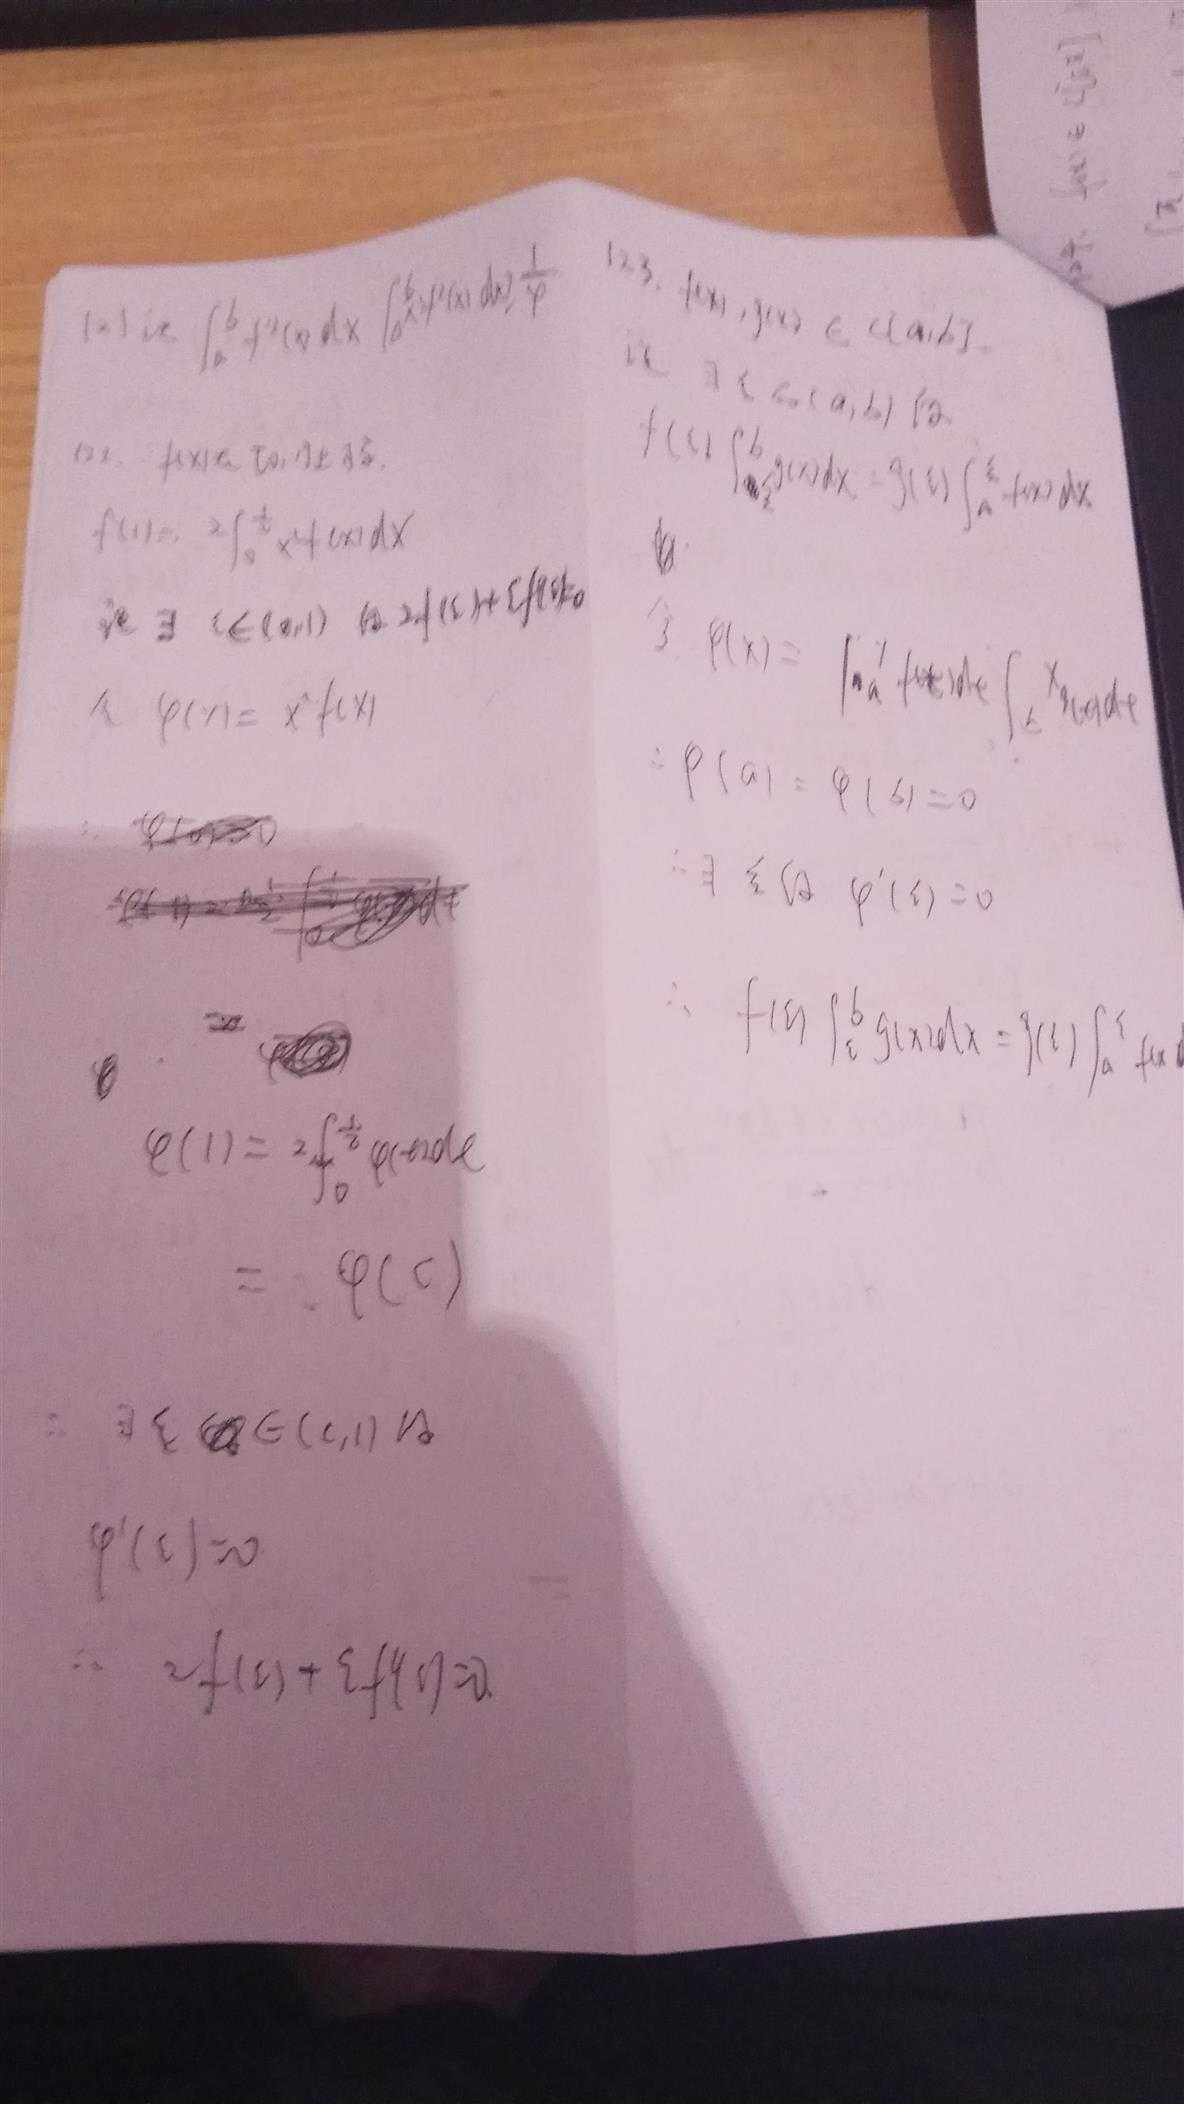 121 证 ∫_a^b f²(x)dx ∫_a^b x²f²(x)dx ≥ 1/4
122. f(x)在[0,1]上可导.
f(1) = 2∫_0^{1/2} x²f(x)dx
证 ∃ ξ∈(0,1) 使 2f(ξ)+ξf'(ξ)=0
令 φ(x) = x²f(x)
∴
φ(1) = 2∫_0^{1/2} φ(t)dt
= φ(c)
∴ ∃ ξ ∈(c,1) 使
φ'(ξ)=0
∴ 2f(ξ)+ξf'(ξ)=0
123. f(x), g(x) ∈ C[a,b].
证 ∃ ξ∈(a,b) 使
f(ξ) ∫_ξ^b g(x)dx = g(ξ) ∫_a^ξ f(x)dx
令 φ(x) = ∫_a^x f(t)dt ∫_b^x g(t)dt
∴ φ(a) = φ(b) = 0
∴ ∃ ξ 使 φ'(ξ)=0
∴ f(ξ) ∫_ξ^b g(x)dx = g(ξ) ∫_a^ξ f(x)d